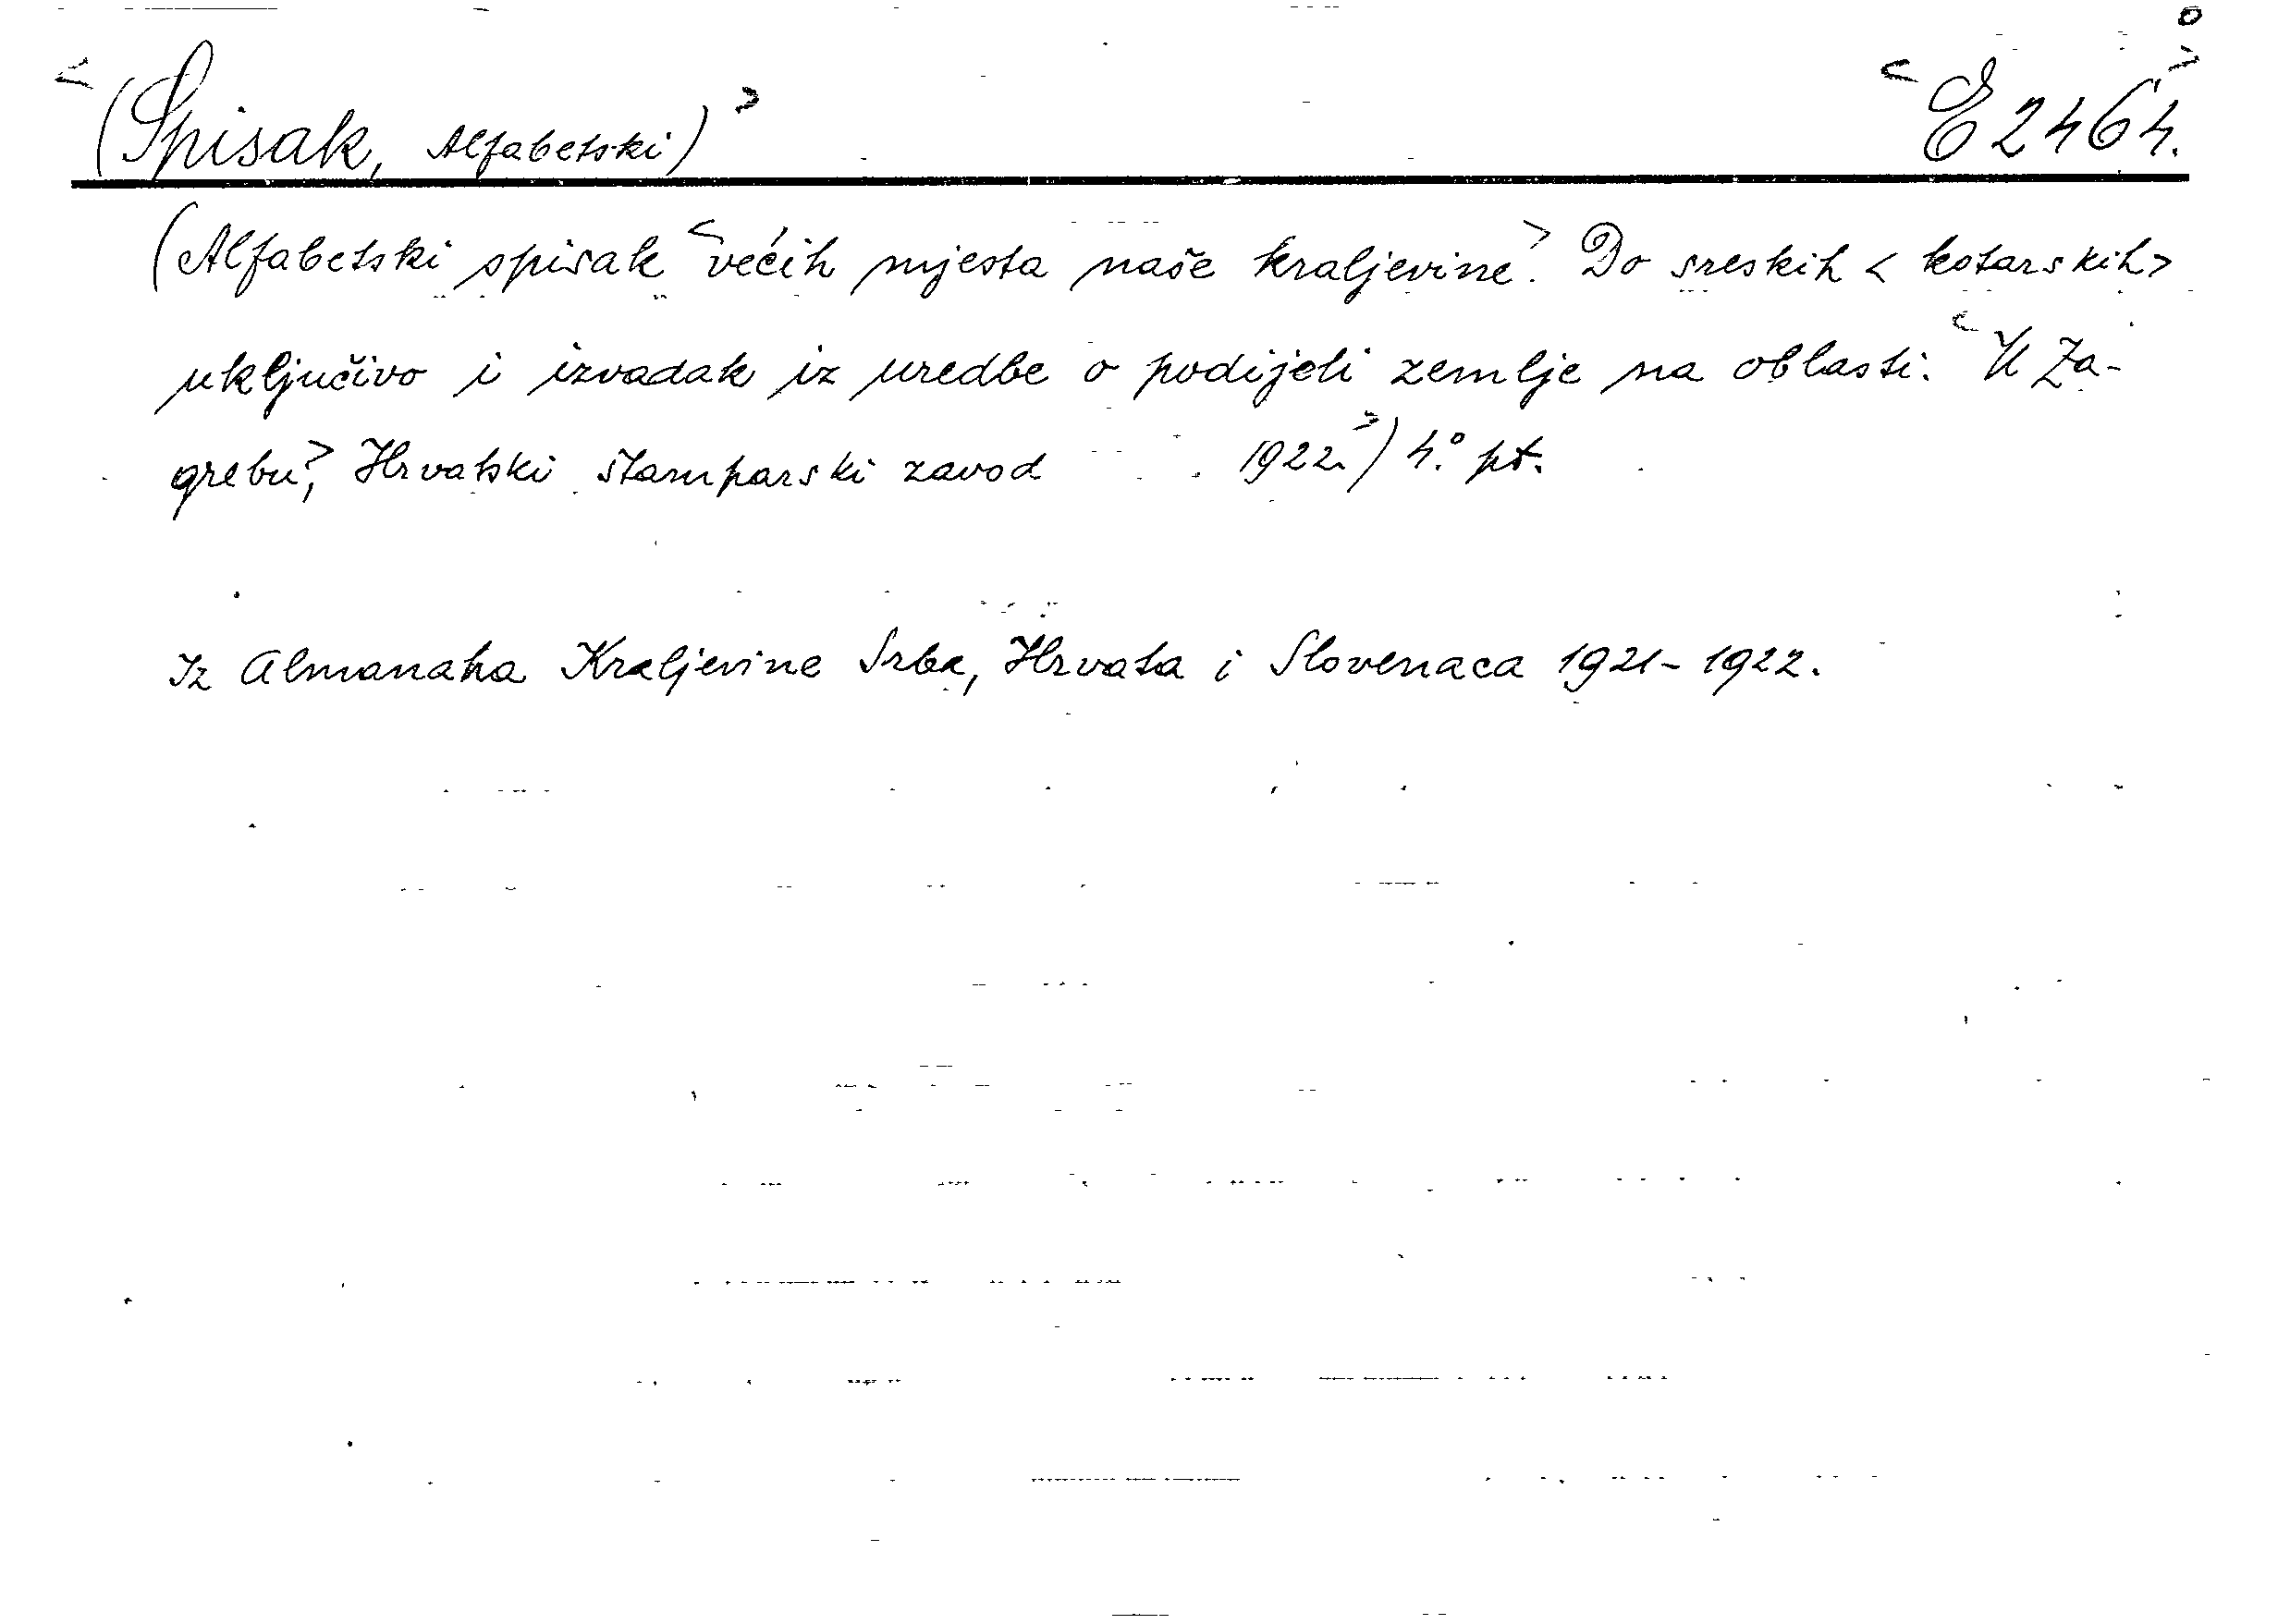 <(Spisak, Alfabetski)> <E 2464.>
(Alfabetski spisak <većih mjesta naše kraljevine>. Do sreskih <kotarskih>
uključivo i izvadak iz uredbe o podijeli zemlje na oblasti. <U Za-
grebu>, Hrvatski štamparski zavod 1922.>) 4.° pt.
Iz Almanaha Kraljevine Srba, Hrvata i Slovenaca 1921-1922.